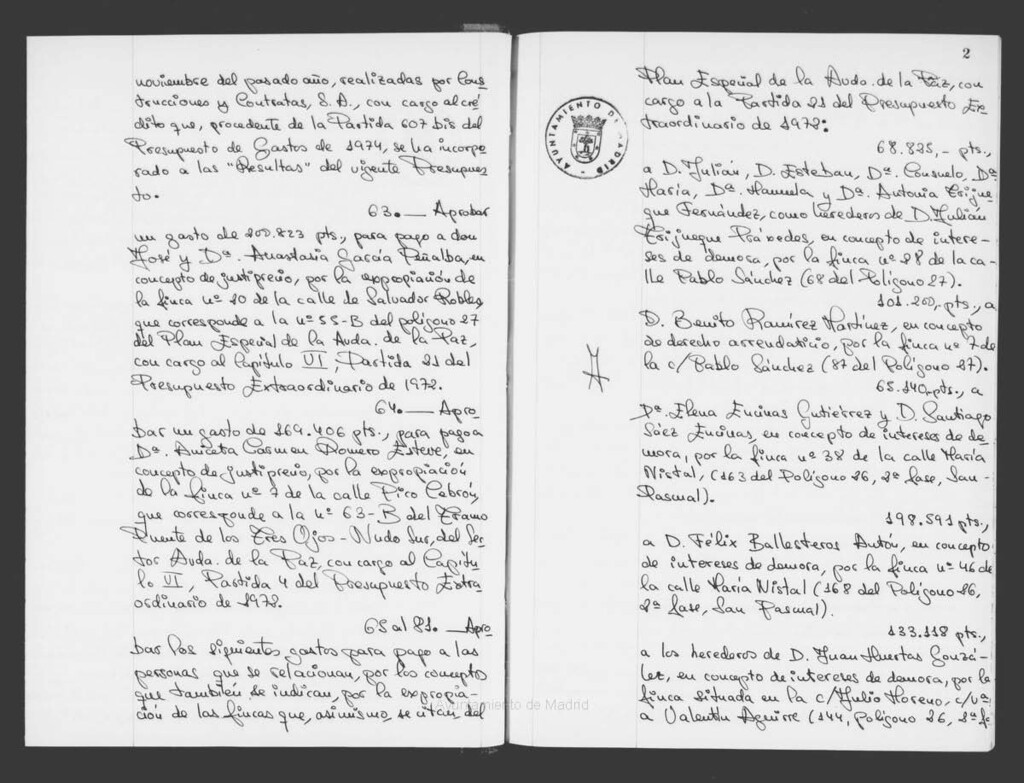 noviembre del pasado año, realizadas por Cons
trucciones y Contratas, S.A., con cargo al cré
dito que, procedente de la Partida 607 bis del
Presupuesto de Gastos de 1974, se ha incorpo
rado a las "Resultas" del vigente Presupues
to.
63.— Aprobar
un gasto de 200.823 pts., para pago a don
José y Dª. Anastasia García Peñalba, en
concepto de justiprecio, por la expropiación de
la finca nº 20 de la calle de Salvador Robles,
que corresponde a la nº 55-B del polígono 27
del Plan Especial de la Avda. de la Paz,
con cargo al Capítulo VI, Partida 21 del
Presupuesto Extraordinario de 1972.
64.— Apro
bar un gasto de 164.406 pts., para pago a
Dª. Aniceta Carmen Romero Esteve, en
concepto de justiprecio, por la expropiación
de la finca nº 7 de la calle Pico Cebrón,
que corresponde a la nº 63-B del Tramo
Puente de los Tres Ojos-Nudo Sur, del Sec
tor Avda. de la Paz, con cargo al Capítu
lo VI, Partida 4 del Presupuesto Extra
ordinario de 1972.
65 al 81.— Apro
bar los siguientes gastos para pago a las
personas que se relacionan, por los conceptos
que también se indican, por la expropia-
ción de las fincas que, asimismo, se citan, del
Ayuntamiento de Madrid
2
AYUNTAMIENTO DE MADRID
Plan Especial de la Avda. de la Paz, con
cargo a la Partida 21 del Presupuesto Ex
traordinario de 1972:
68.825,- pts.,
a D. Julián, D. Esteban, Dª. Consuelo, Dª
María, Dª. Manuela y Dª. Antonia Trijue
que Fernández, como herederos de D. Julián
Trijueque Práxedes, en concepto de intere-
ses de demora, por la finca nº 28 de la ca-
lle Pablo Sánchez (68 del Polígono 27).
101.200,- pts., a
D. Benito Ramírez Martínez, en concepto
de derecho arrendaticio, por la finca nº 7 de
la c/ Pablo Sánchez (87 del Polígono 27).
65.140, pts., a
Dª. Elena Encinas Gutiérrez y D. Santiago
Sáez Encinas, en concepto de intereses de de-
mora, por la finca nº 38 de la calle María
Nistal, (163 del Polígono 26, 2ª fase, San
Pascual).
198.591 pts.,
a D. Félix Ballesteros Antón, en concepto
de intereses de demora, por la finca nº 46 de
la calle María Nistal (168 del Polígono 26,
2ª fase, San Pascual).
133.118 pts.,
a los herederos de D. Juan Huertas Gonzá-
lez, en concepto de intereses de demora, por la
finca situada en la c/ Julio Moreno, c/vª.
a Valentín Aguirre (144, polígono 26, 2ª f.